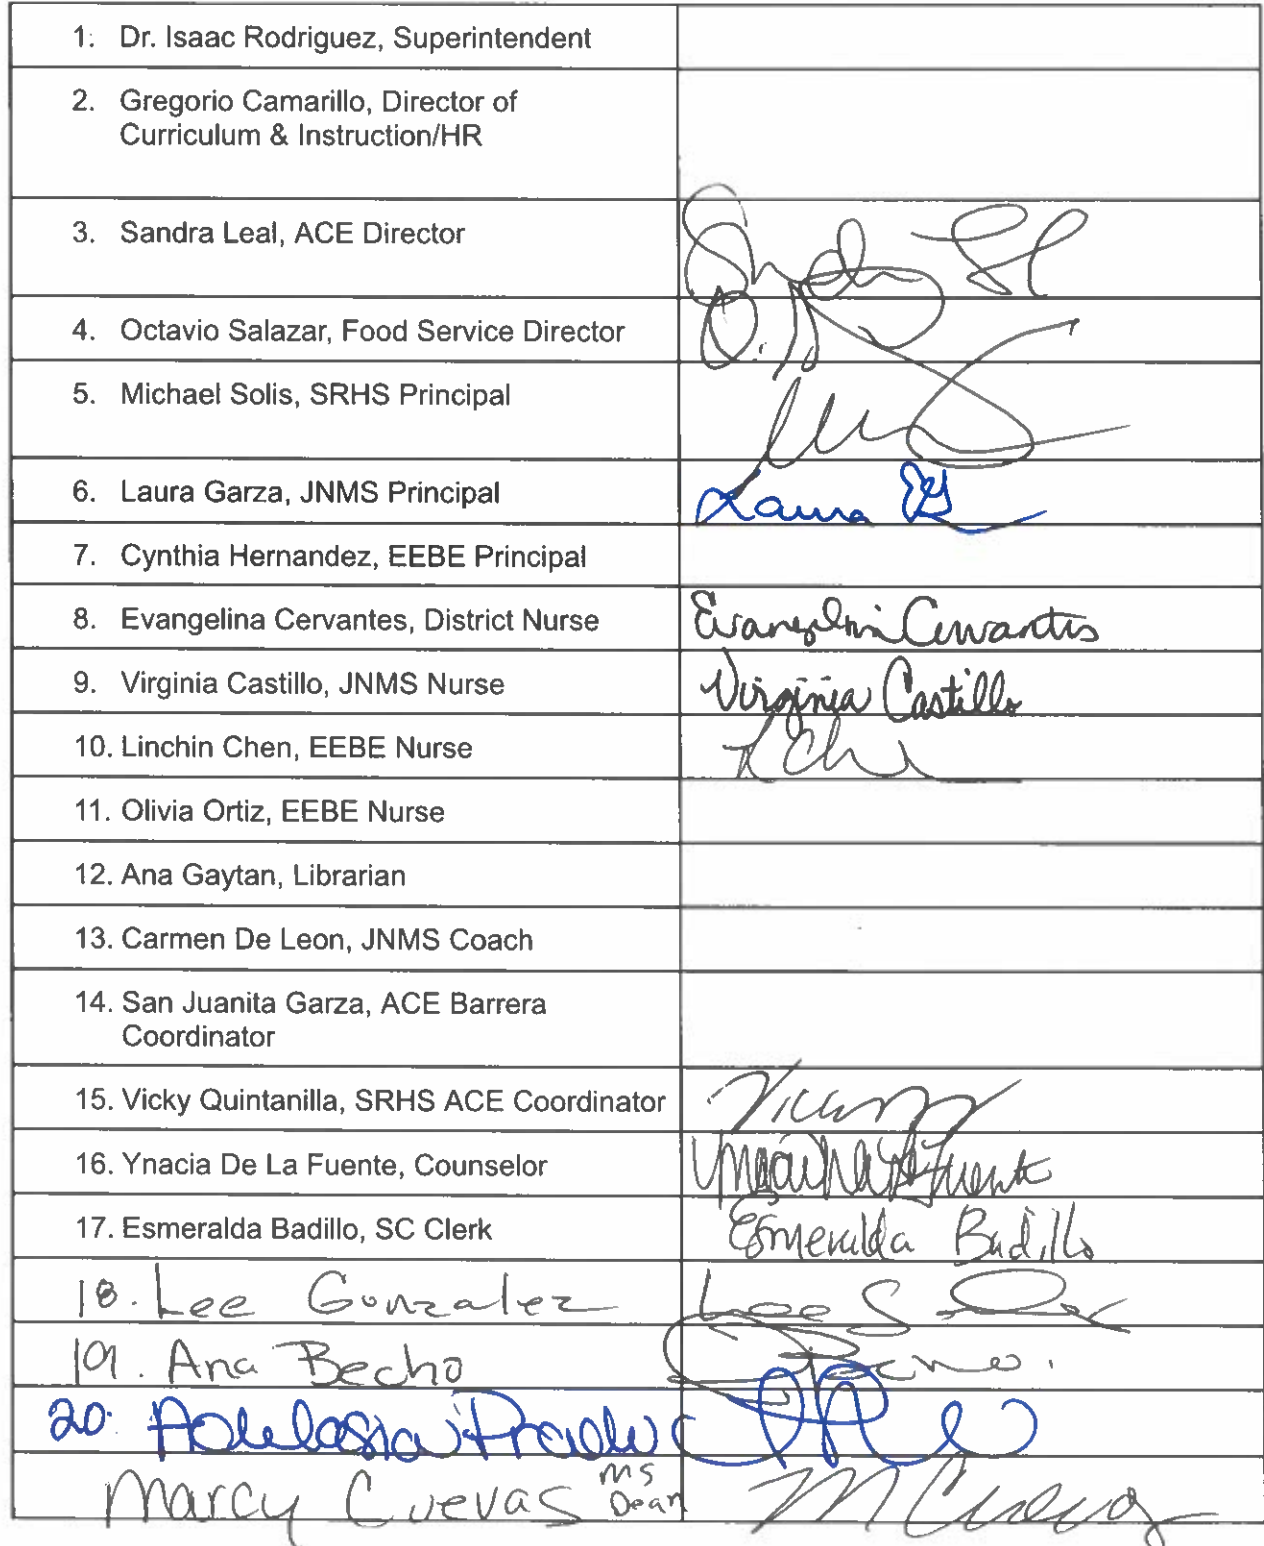 1. Dr. Isaac Rodriguez, Superintendent
2. Gregorio Camarillo, Director of
Curriculum & Instruction/HR
3. Sandra Leal, ACE Director
4. Octavio Salazar, Food Service Director
5. Michael Solis, SRHS Principal
6. Laura Garza, JNMS Principal Laura
7. Cynthia Hernandez, EEBE Principal
8. Evangelina Cervantes, District Nurse Evangelina Cervantes
9. Virginia Castillo, JNMS Nurse Virginia Castillo
10. Linchin Chen, EEBE Nurse
11. Olivia Ortiz, EEBE Nurse
12. Ana Gaytan, Librarian
13. Carmen De Leon, JNMS Coach
14. San Juanita Garza, ACE Barrera
Coordinator
15. Vicky Quintanilla, SRHS ACE Coordinator
16. Ynacia De La Fuente, Counselor
17. Esmeralda Badillo, SC Clerk Esmeralda Badillo
18. Lee Gonzalez Lee
19. Ana Becho
20.
Marcy Cuevas MS M Cuevas
Dean